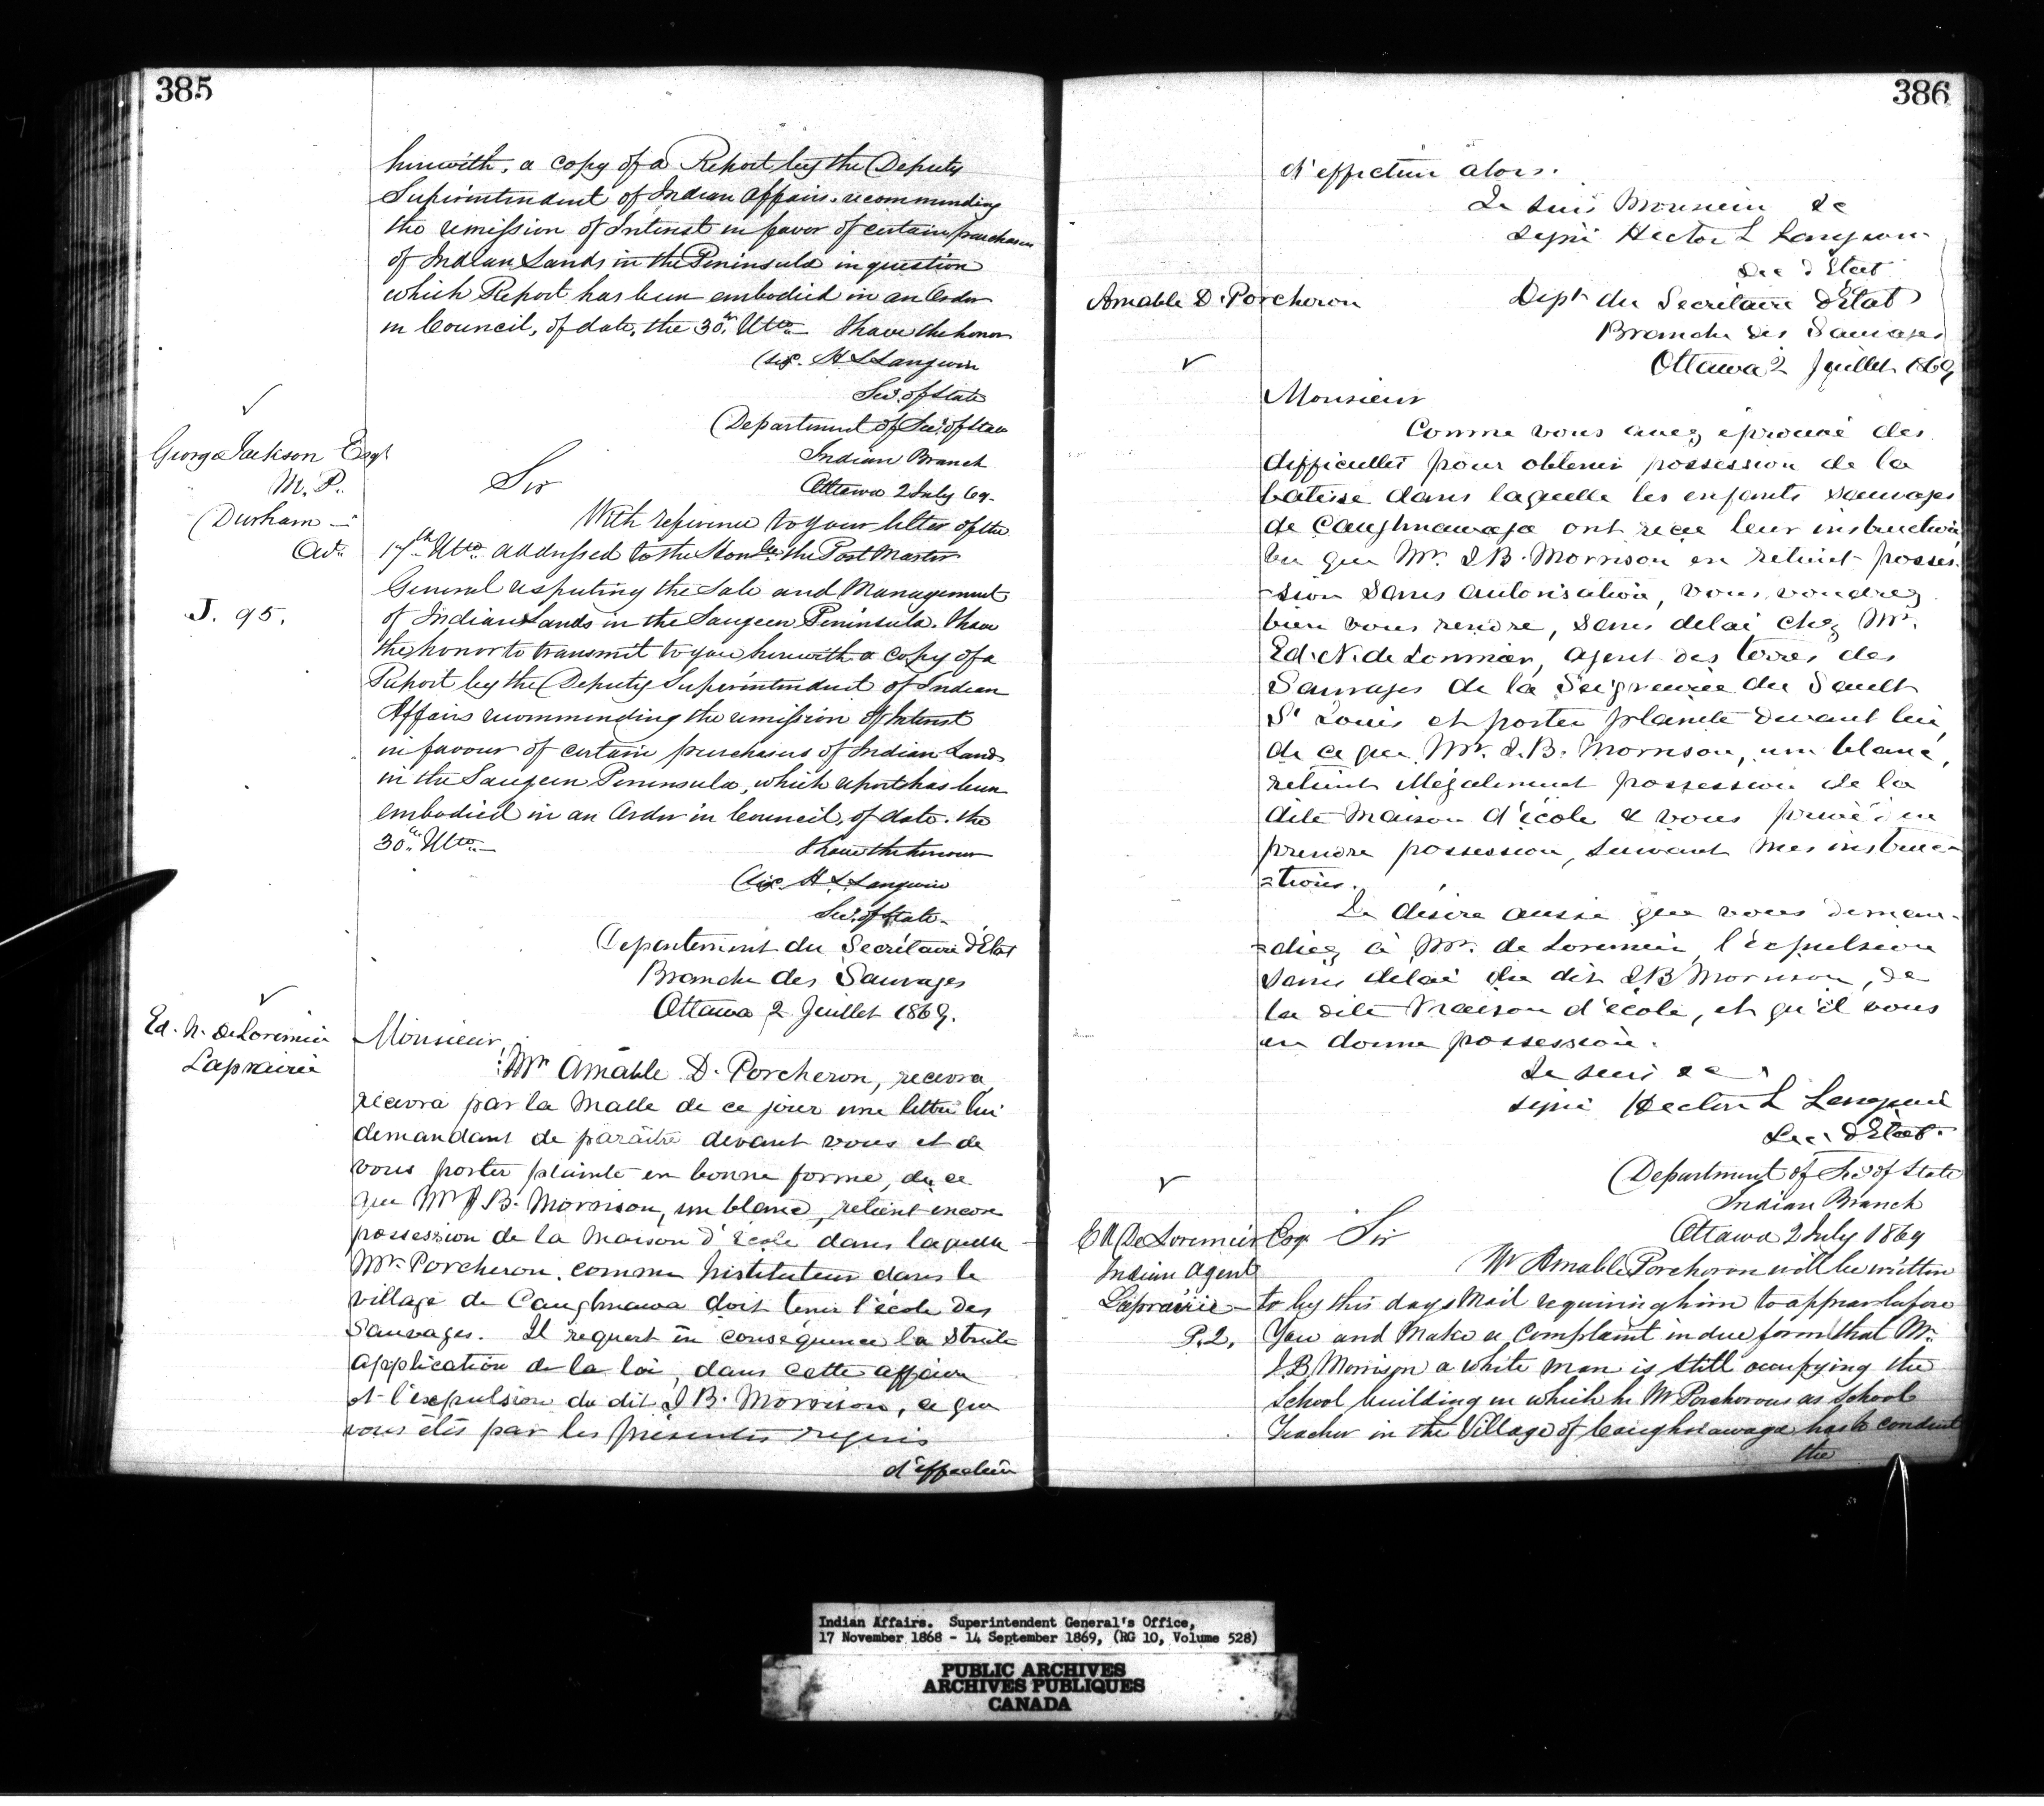 385
herewith, a copy of a Report by the Deputy
Superintendent of Indian Affairs, recommending
the remission of Interest in favor of certain purchasers
of Indian Lands in the Peninsula in question
which Report has been embodied in an Order
in Council, of date, the 30th Ulto. I have the honor
(sig. H L Langevin
Sec. of State
Department of Sec. of State
Indian Branch
Ottawa 2 July 69.
George Jackson Esqr
M. P.
Durham
Ont.
J. 95.
Sir
With reference to your letter of the
17th Ulto. addressed to the Honble. the Post Master
General respecting the Sale and Management
of Indian Lands in the Saugeen Peninsula. I have
the honor to transmit to you herewith a copy of a
Report by the Deputy Superintendent of Indian
Affairs recommending the remission of Interest
in favour of certain purchasers of Indian Lands
in the Saugeen Peninsula, which report has been
embodied in an Order in Council, of date. the
30th Ulto.
I have the honour
(sig. H. L. Langevin
Sec. of State.
Departement du Secrétaire d'Etat
Branche des Sauvages
Ottawa 2 Juillet 1869.
Ed. N. DeLorimier
Laprairie
Monsieur,
Mr Amable D. Porcheron, recevra,
recevra par la Malle de ce jour une lettre lui
demandant de paraître devant vous et de
vous porter plainte en bonne forme, de ce
que Mr J B. Morrison, un blanc, retient encore
possession de la Maison d'école dans laquelle
Mr. Porcheron. comme Instituteur dans le
village de Caughnawa doit tenir l'école des
Sauvages. Il requert en conséquence la stricte
application de la loi, dans cette affaire
et l'expulsion du dit J B. Morrison, ce que
vous êtes par les présentes requis
d'effectuer
386
d'effectuer alors.
Je suis Monsieur &c
signé Hector L Langevin
Sec d'État
Amable D. Porcheron
Dept. du Secrétaire d'Etat
Branche des Sauvages
Ottawa 2 Juillet 1869
Monsieur
Comme vous avez éprouvé des
difficultés pour obtenir possession de la
batisse dans laquelle les enfants sauvages
de Caughnawaga ont reçu leur instruction
vu que Mr. J B. Morrison en retient posses-
-sion sans autorisation, vous voudrez
bien vous rendre, sans delai chez Mr.
Ed. N. de Lorimier, agent des terres des
Sauvages de la Seigneurie du Sault
St Louis et porter plainte devant lui,
de ce que Mr. J. B. Morrison, un blanc,
retient illégalement possession de la
dite Maison d'école & vous prive d'en
prendre possession, suivant mes instruc-
=tions.
Je désire aussi que vous deman-
=diez à Mr. de Lorimier, l'expulsion
sans delai du dit J B Morrison, de
la dite Maison d'école, et qu'il vous
en donne possession.
Je suis &c
signé Hector L Langevin
Sec. d'Etat.
Department of Sec of State
Indian Branch
Ottawa 2 July 1869
E N DeLorimier Esqr
Indian Agent
Laprairie
P. 2,
Sir
Mr Amable Porcheron will be written
to by this days Mail requiring him to appear before
You and Make a Complaint in due form that Mr.
J. B Morrison a white man is still occupying the
School building in which he Mr Porcherous as School
Teacher in the Village of Caughnawaga has to conduct
the
Indian Affairs. Superintendent General's Office,
17 November 1868 - 14 September 1869, (RG 10, Volume 528)
PUBLIC ARCHIVES
ARCHIVES PUBLIQUES
CANADA